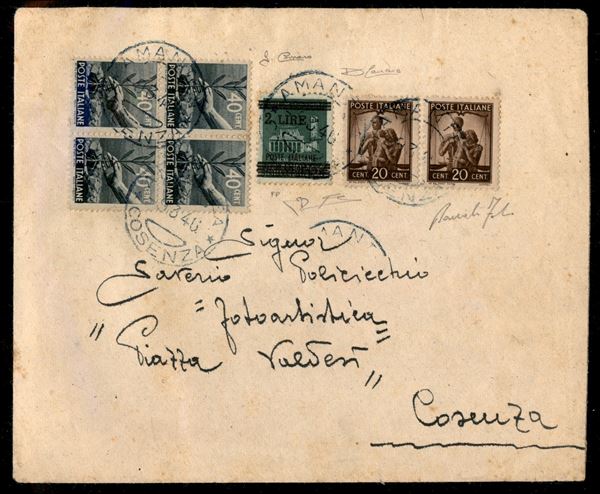 AMAN
POSTE ITALIANE
40 CENT
POSTE ITALIANE
40 CENT
POSTE ITALIANE
40 CENT
POSTE ITALIANE
40 CENT
COSENZA
2 LIRE
POSTE ITALIANE
AMAN
POSTE ITALIANE
CENT. 20 CENT.
POSTE ITALIANE
CENT. 20 CENT.
AMAN
Signor
Saverio Policicchio
"Fotoartistica"
"Piazza Valdesi"
Cosenza